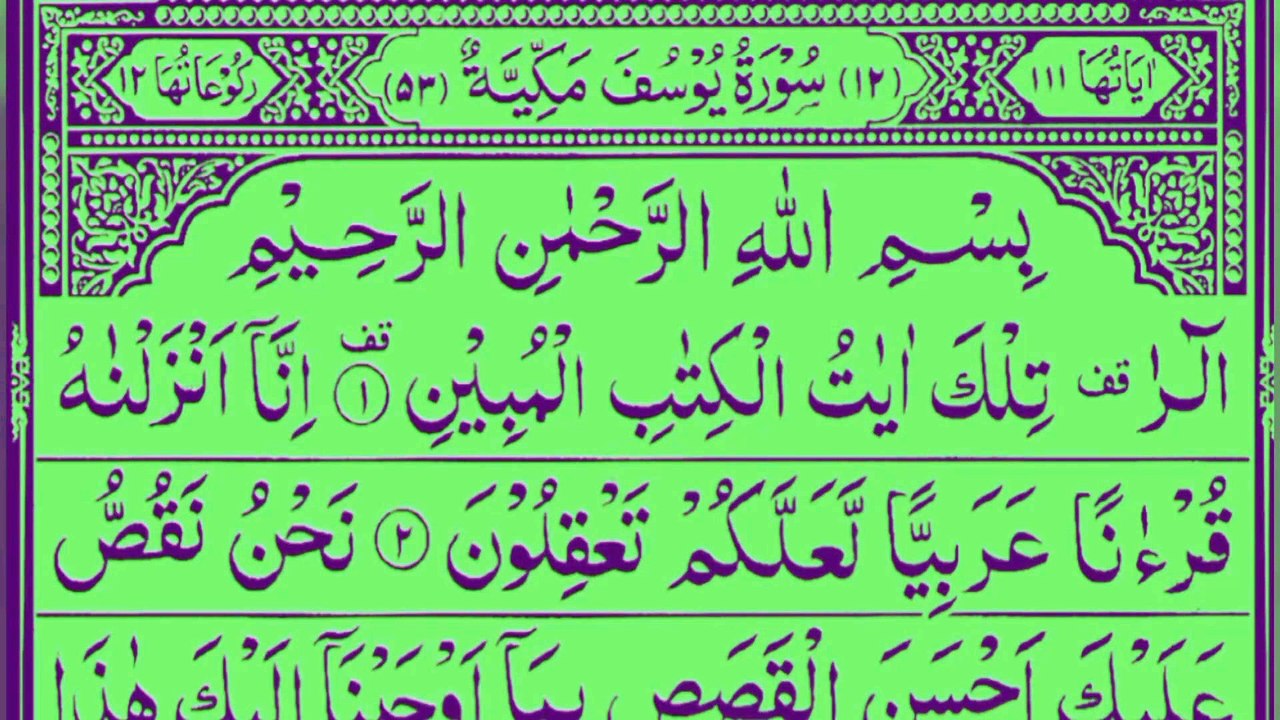 اٰیَاتُهَا ١١١ (١٢) سُوْرَةُ يُوْسُفَ مَكِّيَّةٌ (٥٣) رُكُوْعَاتُهَا ١٢
بِسْمِ اللّٰهِ الرَّحْمٰنِ الرَّحِيْمِ
الٓرٰ قف تِلْكَ اٰيٰتُ الْكِتٰبِ الْمُبِيْنِ ١ قف اِنَّآ اَنْزَلْنٰهُ
قُرْءٰنًا عَرَبِيًّا لَّعَلَّكُمْ تَعْقِلُوْنَ ٢ نَحْنُ نَقُصُّ
عَلَيْكَ اَحْسَنَ الْقَصَصِ بِمَآ اَوْحَيْنَآ اِلَيْكَ هٰذَا